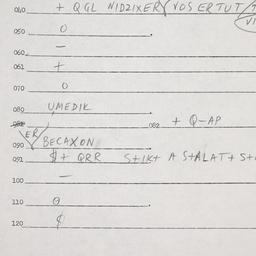 040 + QGL NIDZIXER VOS ERTUT
050 0
060 —
061 +
070 0
080 UMEDIK
082 + Q-AP
ER
090 BECAXON
091 $+ QRR S+IK+ A S+ALAT+ S+
100 —
110 0
120